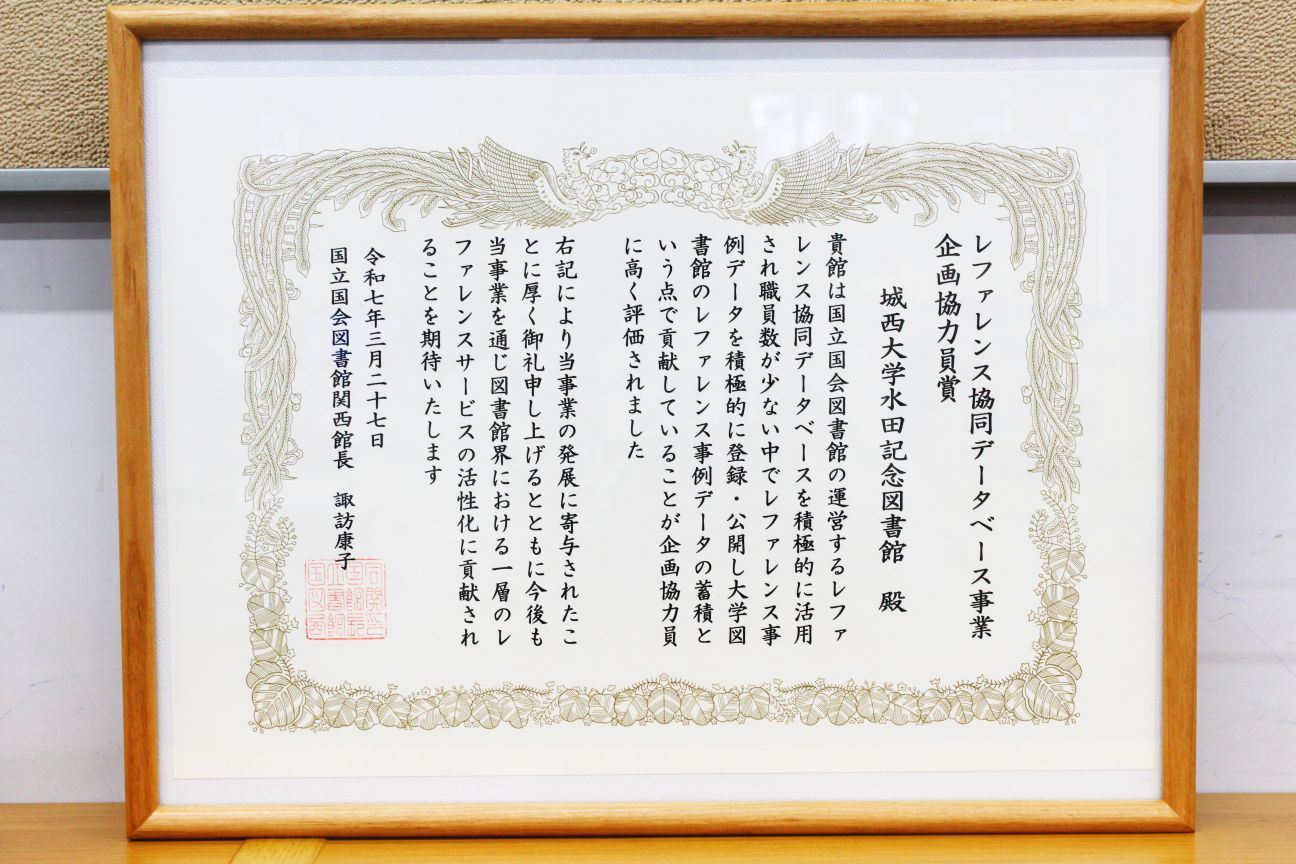 レファレンス協同データベース事業
企画協力員賞
城西大学水田記念図書館 殿
貴館は国立国会図書館の運営するレファ
レンス協同データベースを積極的に活用
され職員数が少ない中でレファレンス事
例データを積極的に登録・公開し大学図
書館のレファレンス事例データの蓄積と
いう点で貢献していることが企画協力員
に高く評価されました
右記により当事業の発展に寄与されたこ
とに厚く御礼申し上げるとともに今後も
当事業を通じ図書館界における一層のレ
ファレンスサービスの活性化に貢献され
ることを期待いたします
令和七年三月二十七日
国立国会図書館関西館長 諏訪康子